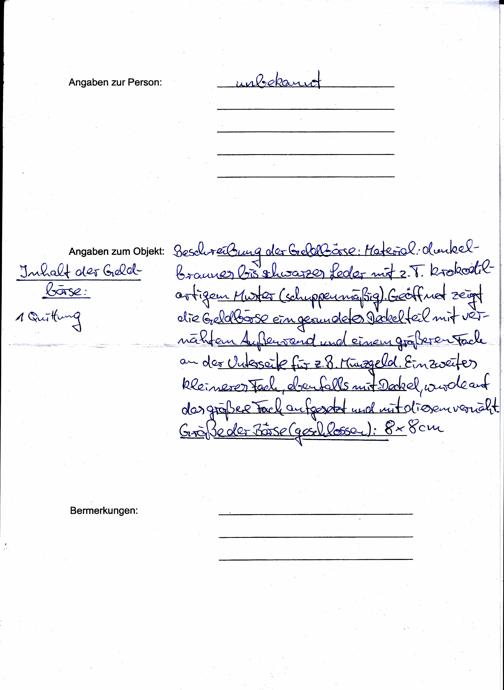 Angaben zur Person: unbekannt
Angaben zum Objekt: Beschreibung der Geldbörse: Material: dunkel-
braunes bis schwarzes Leder mit z.T. krokodil-
artigem Muster (schuppenmäßig). Geöffnet zeigt
die Geldbörse ein gerundetes Deckelteil mit ver-
nähtem Außenrand und einem größeren Fach
an der Unterseite für z.B. Münzgeld. Ein zweites
kleineres Fach, ebenfalls mit Deckel, wurde auf
das größere Fach aufgesetzt und mit diesem vernäht
Größe der Börse (geschlossen): 8 x 8 cm
Inhalt der Geld-
börse:
1 Quittung
Bermerkungen: